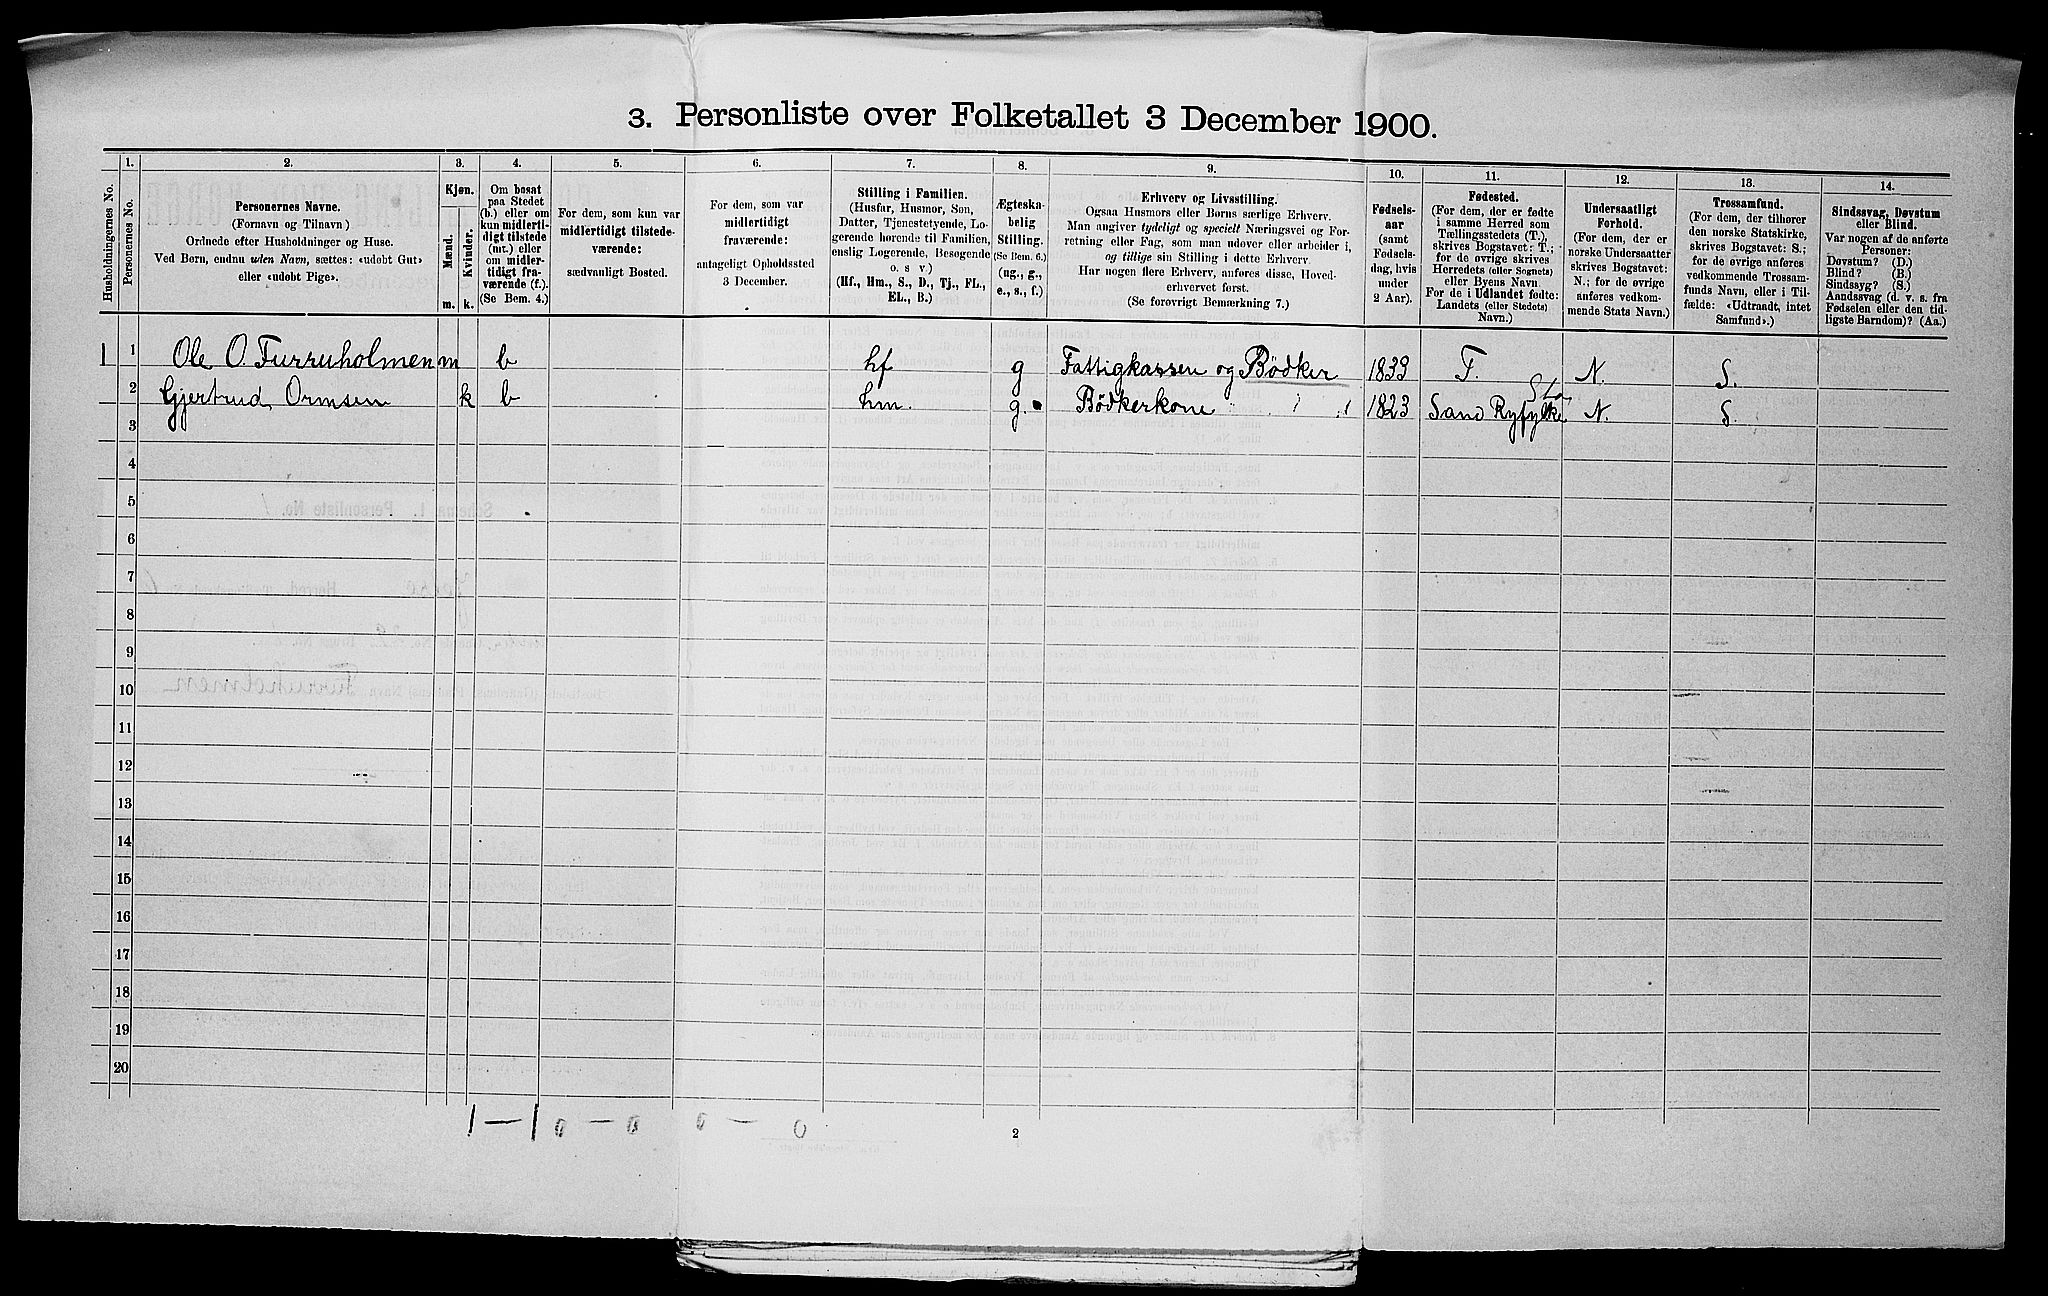 3. Personliste over Folketallet 3 December 1900.
1. 2. 3. 4. 5. 6. 7. 8. 9. 10. 11. 12. 13. 14.
Husholdningernes No.
Personernes No.
Personernes Navne.
(Fornavn og Tilnavn)
Ordnede efter Husholdninger og Huse.
Ved Børn, endnu uden Navn, sættes: «udøbt Gut»
eller «udøbt Pige».
Kjøn.
Mænd.
Kvinder.
m. k.
Om bosat
paa Stedet
(b.) eller om
kun midlerti-
digt tilstede
(mt.) eller
om midler-
tidigt fra-
værende (f.).
(Se Bem. 4.)
For dem, som kun var
midlertidigt tilstede-
værende:
sædvanligt Bosted.
For dem, som var
midlertidigt
fraværende:
antageligt Opholdssted
3 December.
Stilling i Familien.
(Husfar, Husmor, Søn,
Datter, Tjenestetyende, Lo-
gerende hørende til Familien,
enslig Logerende, Besøgende
o. s. v.)
(Hf., Hm., S., D., Tj., FL.,
EL., B.)
Ægteska-
belig
Stilling.
(Se Bem. 6.)
(ug., g.,
e., s., f.)
Erhverv og Livsstilling.
Ogsaa Husmors eller Børns særlige Erhverv.
Man angiver tydeligt og specielt Næringsvei og For-
retning eller Fag, som man udøver eller arbeider i,
og tillige sin Stilling i dette Erhverv.
Har nogen flere Erhverv, anføres disse, Hoved-
erhvervet først.
(Se forøvrigt Bemærkning 7.)
Fødsels-
aar
(samt
Fødsels-
dag, hvis
under
2 Aar).
Fødested.
(For dem, der er fødte
i samme Herred som
Tællingsstedets (T.),
skrives Bogstavet: T.;
for de øvrige skrives
Herredets (eller Sognets)
eller Byens Navn.
For de i Udlandet fødte:
Landets (eller Stedets)
Navn.)
Undersaatligt
Forhold.
(For dem, der er
norske Undersaatter
skrives Bogstavet:
N.; for de øvrige
anføres vedkom-
mende Stats Navn.)
Trossamfund.
(For dem, der tilhører
den norske Statskirke,
skrives Bogstavet: S.;
for de øvrige anføres
vedkommende Trossam-
funds Navn, eller i Til-
fælde: «Udtraadt, intet
Samfund».)
Sindssvag, Døvstum
eller Blind.
Var nogen af de anførte
Personer:
Døvstum? (D.)
Blind? (B.)
Sindssyg? (S.)
Aandssvag (d. v. s. fra
Fødselen eller den tid-
ligste Barndom)? (Aa.)
1 1 Ole O. Furruholmen m b hf g Fattigkassen og Bödker 1833 T. N. S.
2 Gjertrud Ormsen k b hm. g. Bödkerkone 1823 Sand Ryfylke N. S.
3
4
5
6
7
8
9
10
11
12
13
14
15
16
17
18
19
20
1 – 1 0 – 0 0 – 0
2